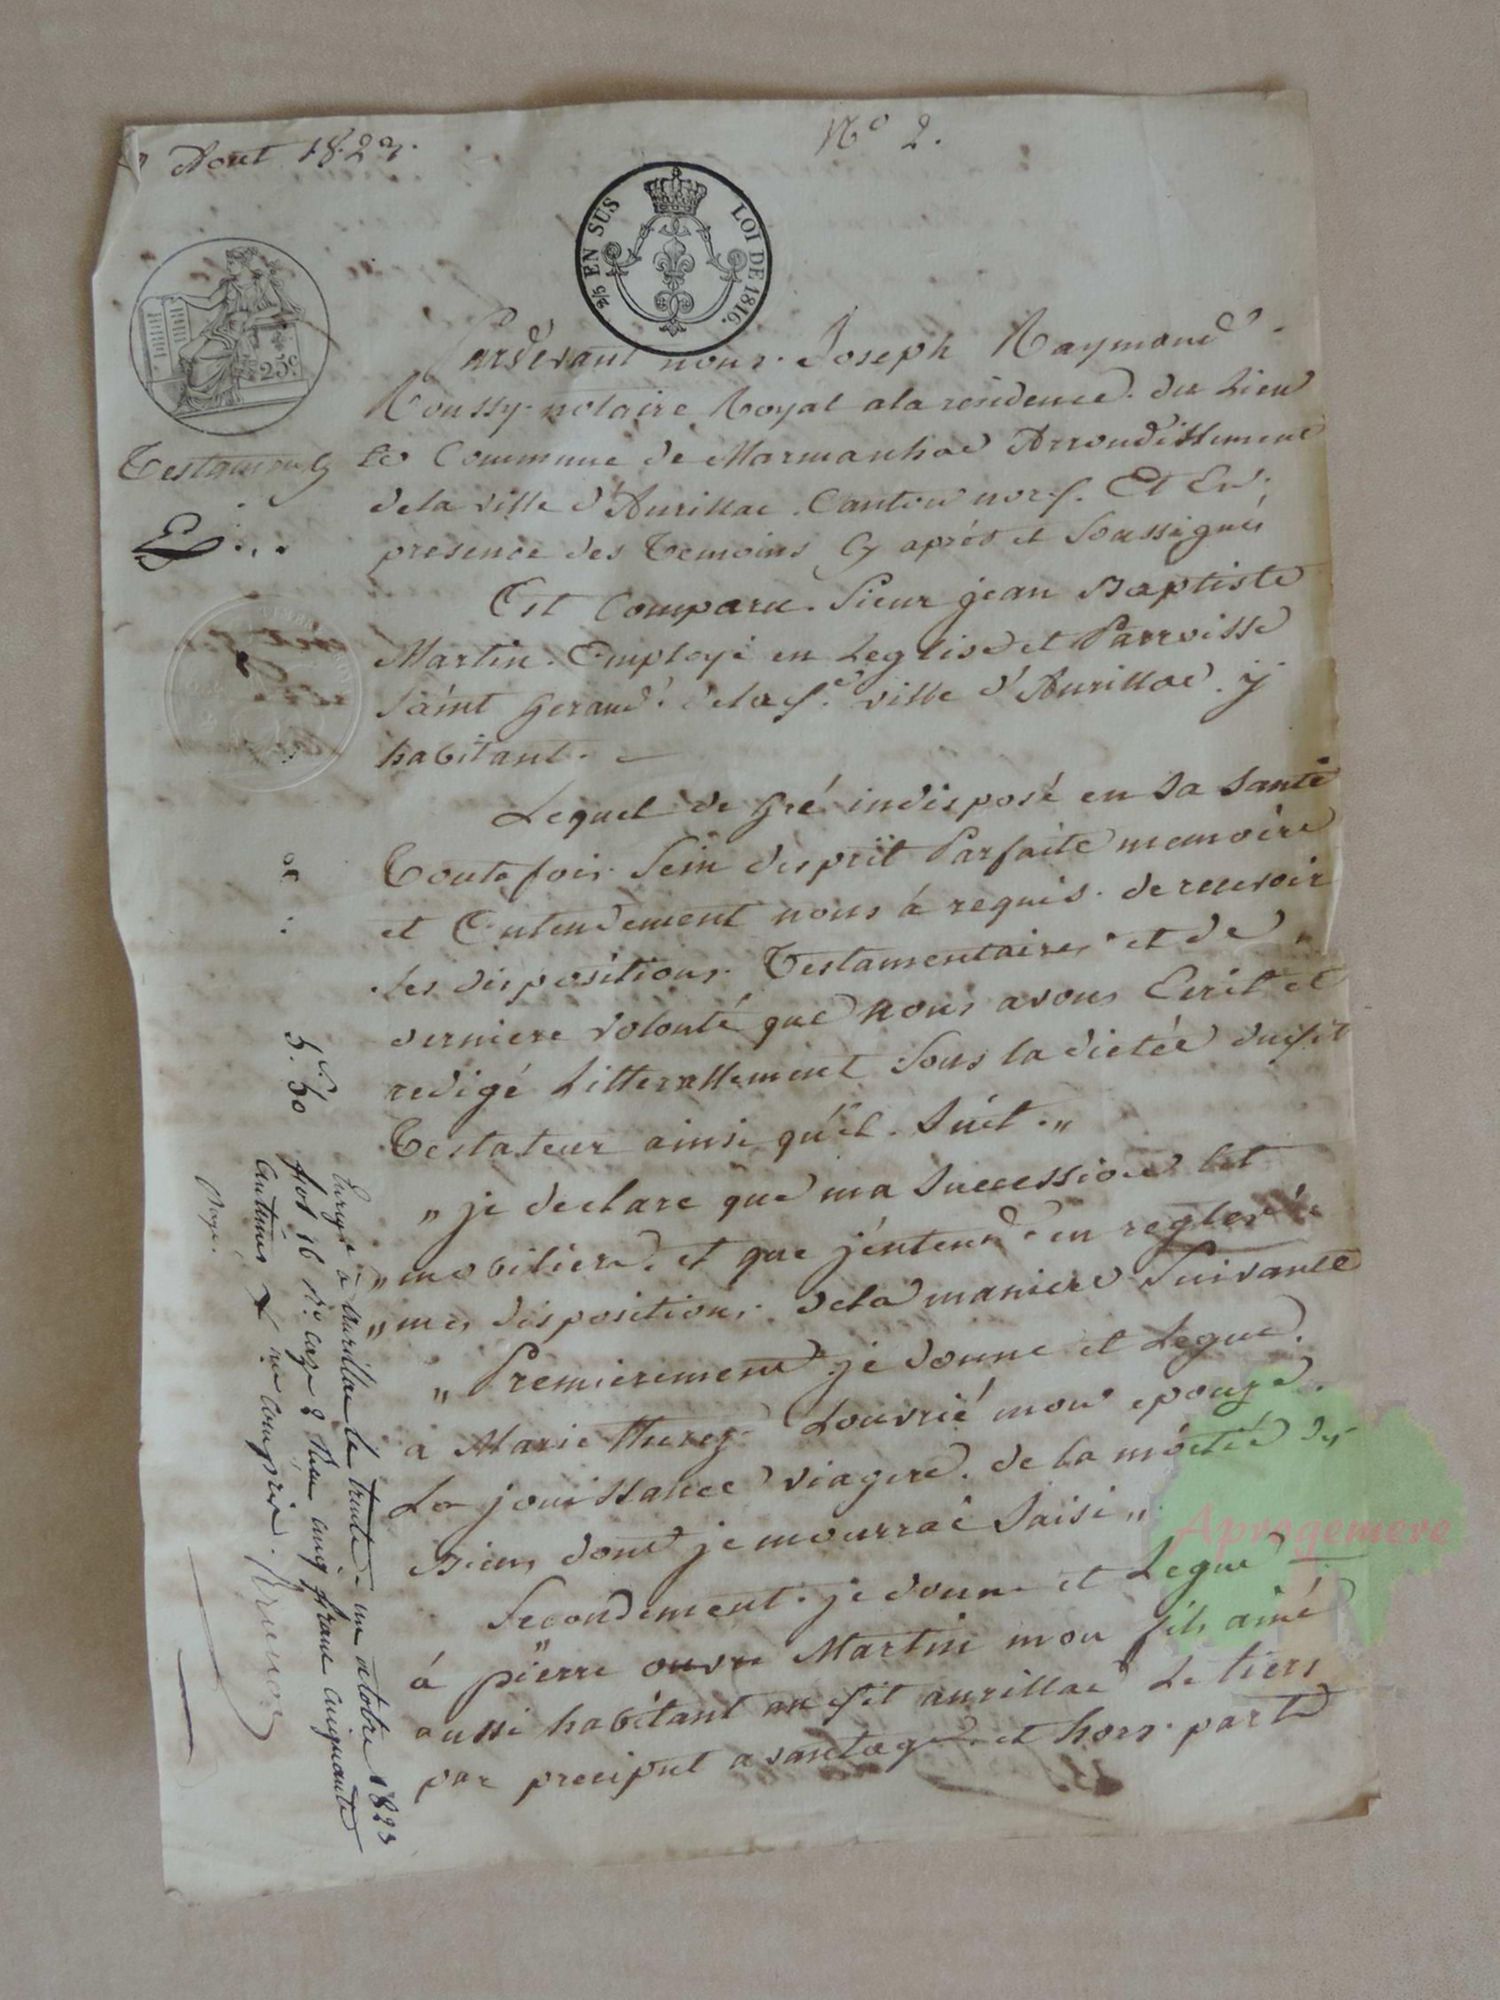 Aout 1823.
N° 2.
2/5 EN SUS LOI DE 1816.
25 c.
Testament
Pardevant nous Joseph Raymond
Roussy notaire Royal ala residence du Lieu
Et Commune de Marmanhac Arrondissement
dela ville d'Aurillac Canton nord. Et En
presence des Temoins Cy aprés et Soussignés
Est Comparu. Sieur jean Baptiste
Martin. Employé en Leglise et Parroisse
Saint Geraud dela d.e ville d'Aurillac y
habitant.
Lequel de Gré indisposé en Sa Santé
Toutefois Sein desprit Parfaite memoire
et Entendement nous á requis de recevoir
Ses dispositions Testamentaires et de
derniere volonté que nous avons Ecrit et
redigé Litterallement Sous la dictée dudit
Testateur ainsi qu'il Suit.
" je declare que ma Succession Est
" mobiliere, et que j'entend en regler
" mes dispositions dela maniere Suivante
" Premierement je donne et Legue
a Marie Therez Louvrié mon epouze
La jouissance viagere de la moetié des
Biens dont je mourrai Saisi "
Secondement je donne et Legue
á pierre Martin mon fils ainé
aussi habitant audit aurillac Le tiers
par preciput avantage et hors part
5. f. 50
Enreg.é à Aurillac le trente un octobre 1823
fol 16 R.o case 8 Reçu cinq francs cinquante
centimes X.e non compris.